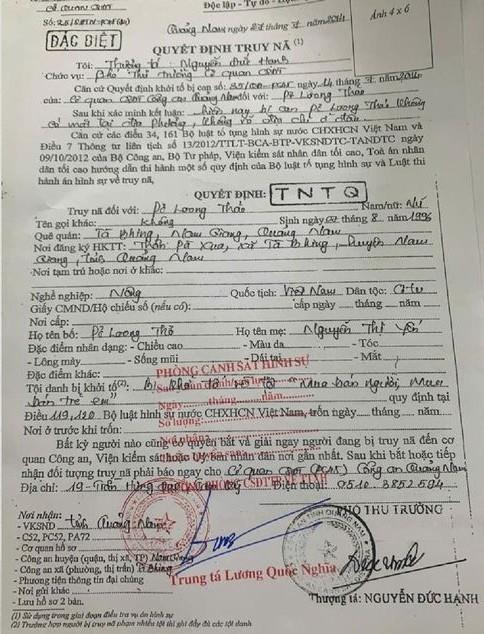 CƠ QUAN CSĐT
Độc lập - Tự do
Số: 28
Quảng Nam
2014
Ảnh 4 x 6
ĐẶC BIỆT
QUYẾT ĐỊNH TRUY NÃ (1)
Tôi: Thượng tá: Nguyễn Đức Hạnh
Chức vụ: Phó Thủ trưởng Cơ quan CSĐT
Căn cứ Quyết định khởi tố bị can số: ngày 14 tháng năm 2014
của Cơ quan CSĐT Công an Quảng Nam đối với: Pơ Loong Thảo
Sau khi xác minh kết luận: hiện nay bị can Pơ Loong Thảo không
có mặt tại địa phương, không rõ
Căn cứ các điều 34, 161 Bộ luật tố tụng hình sự nước CHXHCN Việt Nam và
Điều 7 Thông tư liên tịch số 13/2012/TTLT-BCA-BTP-VKSNDTC-TANDTC ngày
09/10/2012 của Bộ Công an, Bộ Tư pháp, Viện kiểm sát nhân dân tối cao, Toà án nhân
dân tối cao hướng dẫn thi hành một số quy định của Bộ luật tố tụng hình sự và Luật thi
hành án hình sự về truy nã,
QUYẾT ĐỊNH: TNTQ
Truy nã đối với: Pơ Loong Thảo Nam/nữ: Nữ
Tên gọi khác: không Sinh ngày 02 tháng 8 năm 1996
Quê quán: Tà Bhing, Nam Giang, Quảng Nam
Nơi đăng ký HKTT: Thôn Pà Xua, xã Tà Bhing, huyện Nam
Giang, tỉnh Quảng Nam
Nơi tạm trú hoặc nơi ở khác:
Nghề nghiệp: Nông Quốc tịch: Việt Nam Dân tộc: Cơ tu
Giấy CMND/Hộ chiếu số (nếu có): cấp ngày tháng năm
Nơi cấp:
Họ tên bố: Pơ Loong Họ tên mẹ: Nguyễn Thị Yến
Đặc điểm nhân dạng: - Chiều cao - Màu da - Tóc
- Lông mày - Sống mũi - Dái tai - Mắt
Đặc điểm khác:
PHÒNG CẢNH SÁT HÌNH SỰ
Tội danh bị khởi tố(2): Bị khởi tố về tội "Mua bán người, Mua
bán trẻ em" quy định tại
Ngày tháng năm
Điều 119, 120 Bộ luật hình sự nước CHXHCN Việt Nam, trốn ngày tháng năm
Số lượng:
Nơi ở trước khi trốn:
Bất kỳ người nào cũng có quyền bắt và giải ngay người đang bị truy nã đến cơ
quan Công an, Viện kiểm sát hoặc Uỷ ban nhân dân nơi gần nhất. Sau khi bắt hoặc tiếp
nhận đối tượng truy nã phải báo ngay cho Cơ quan CSĐT (PC45) Công an Quảng Nam
Địa chỉ: 19 - Trần Hưng Đạo Điện thoại: 0510 3852594
PHÓ THỦ TRƯỞNG
Nơi nhận:
- VKSND tỉnh Quảng Nam
- C52, PC52, PA72
- Cơ quan hồ sơ
- Công an huyện (quận, thị xã, TP) Nam Giang
- Công an xã (phường, thị trấn) Tà Bhing
- Phương tiện thông tin đại chúng
- Nơi gửi khác
- Lưu hồ sơ 2 bản.
Trung tá Lương Quốc Nghĩa
Thượng tá: NGUYỄN ĐỨC HẠNH
(1) Sử dụng trong giai đoạn điều tra vụ án hình sự
(2) Trường hợp người bị truy nã phạm nhiều tội thì ghi đầy đủ các tội danh